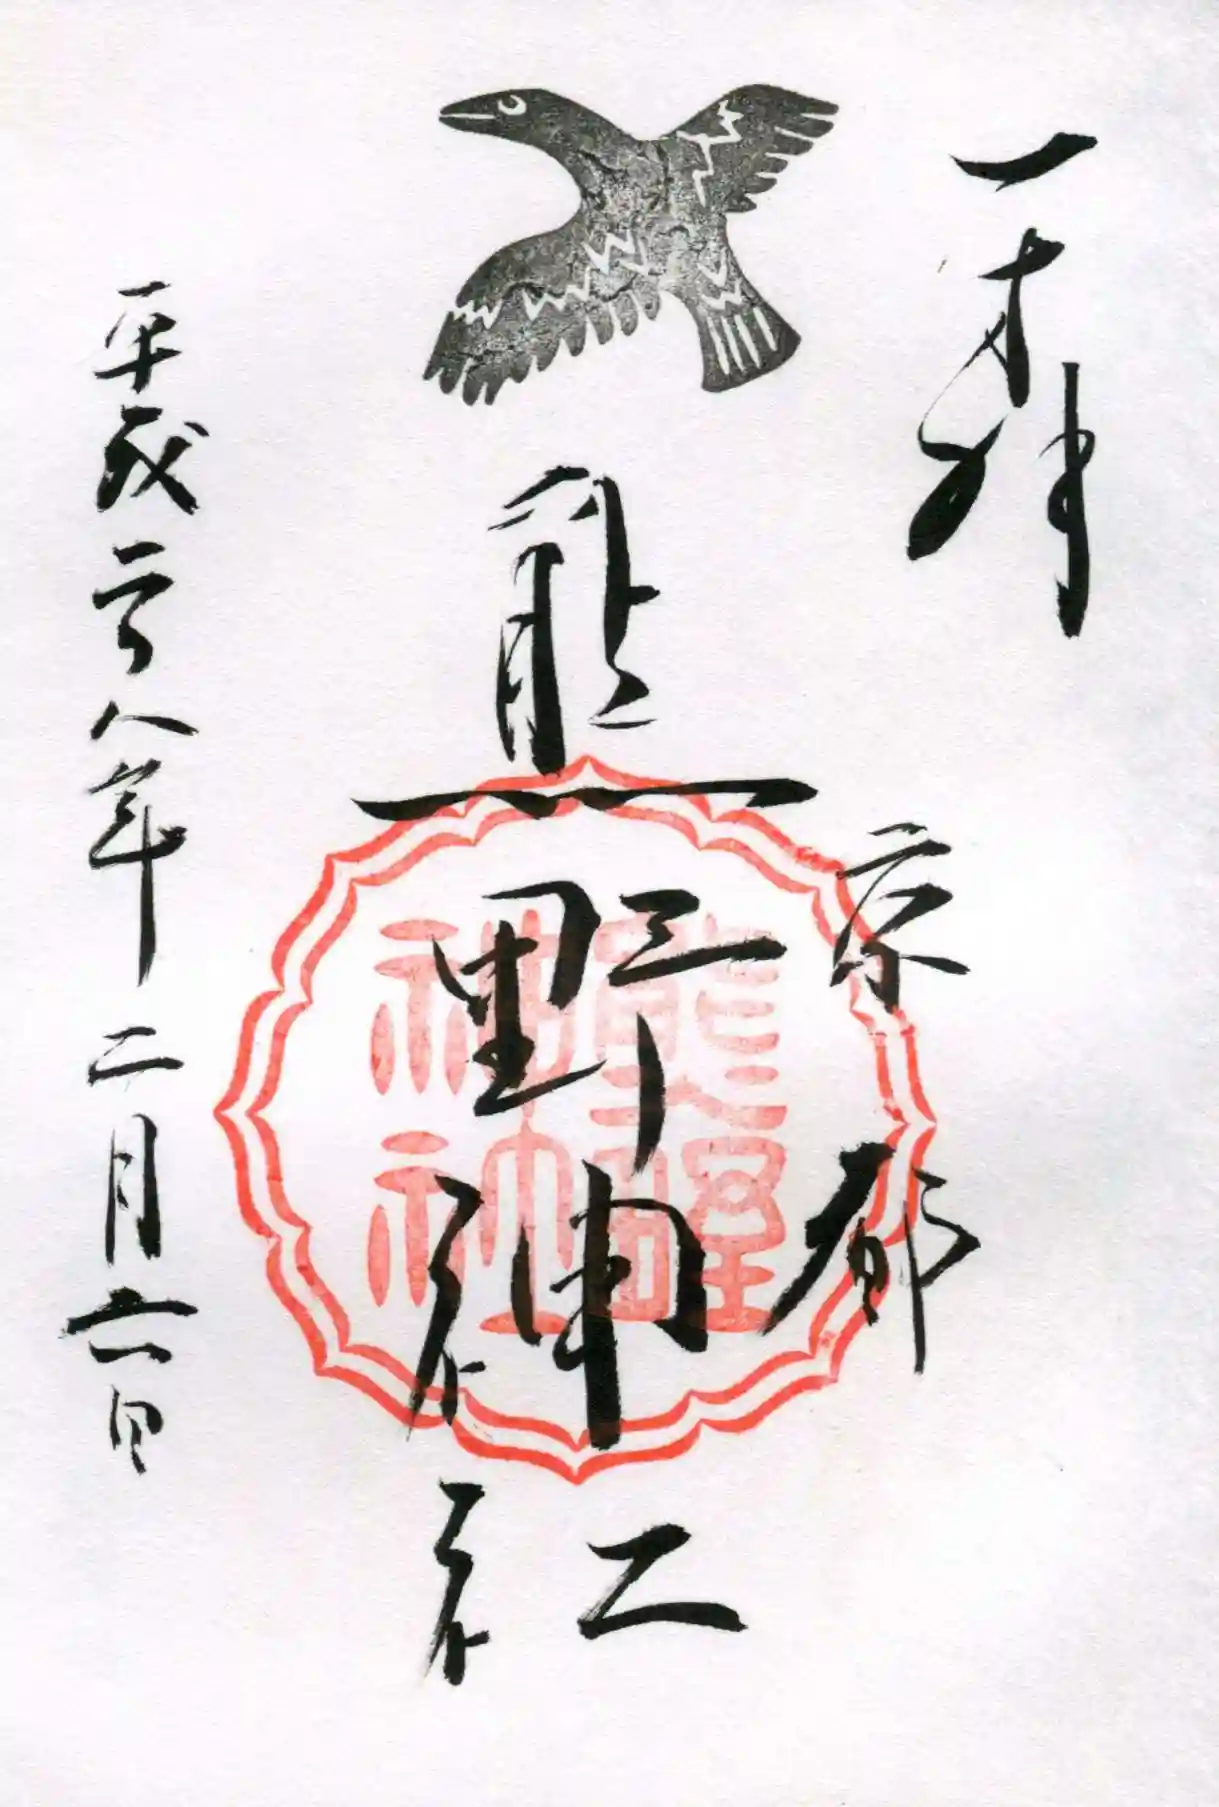 一拝
京都
熊野神社
平成二十八年二月六日
熊野神社